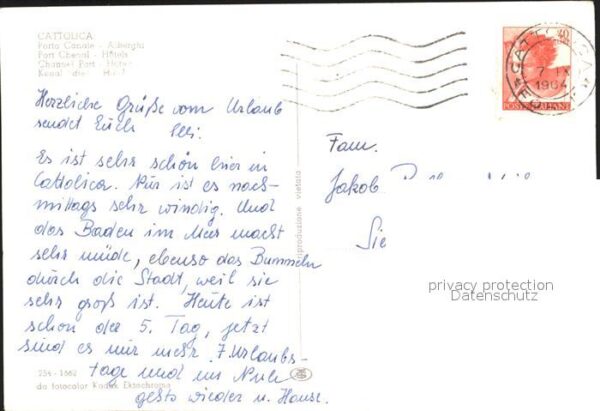 CATTOLICA
Porto Canale - Alberghi
Port Chenal - Hôtels
Channel Port - Hotels
Kanal
CATTOLICA
40
7 IX
1964
POSTE ITALIANE
Herzliche Grüße vom Urlaub
sendet Euch
Fam.
Jakob
Sie
Es ist sehr schön hier in
Cattolica. Nur ist es nach-
mittags sehr windig. Und
das Baden im Meer macht
sehr müde, ebenso das Bummeln
durch die Stadt, weil sie
sehr groß ist. Heute ist
schon der 5. Tag, jetzt
sind es nur mehr 7 Urlaubs-
tage und
gehts wieder n. Hause.
riproduzione vietata
254 - 1662
da fotocolor Kodak Ektachrome
privacy protection
Datenschutz